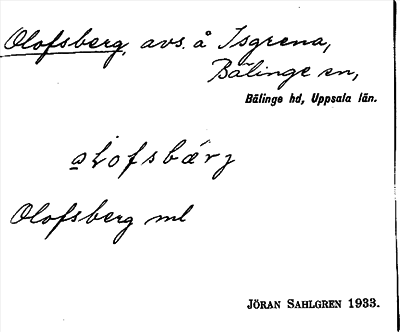 Olofsberg, avs. å Isgrena,
Bälinge sn,
Bälinge hd, Uppsala län.
Olofsberg ml
JÖRAN SAHLGREN 1933.